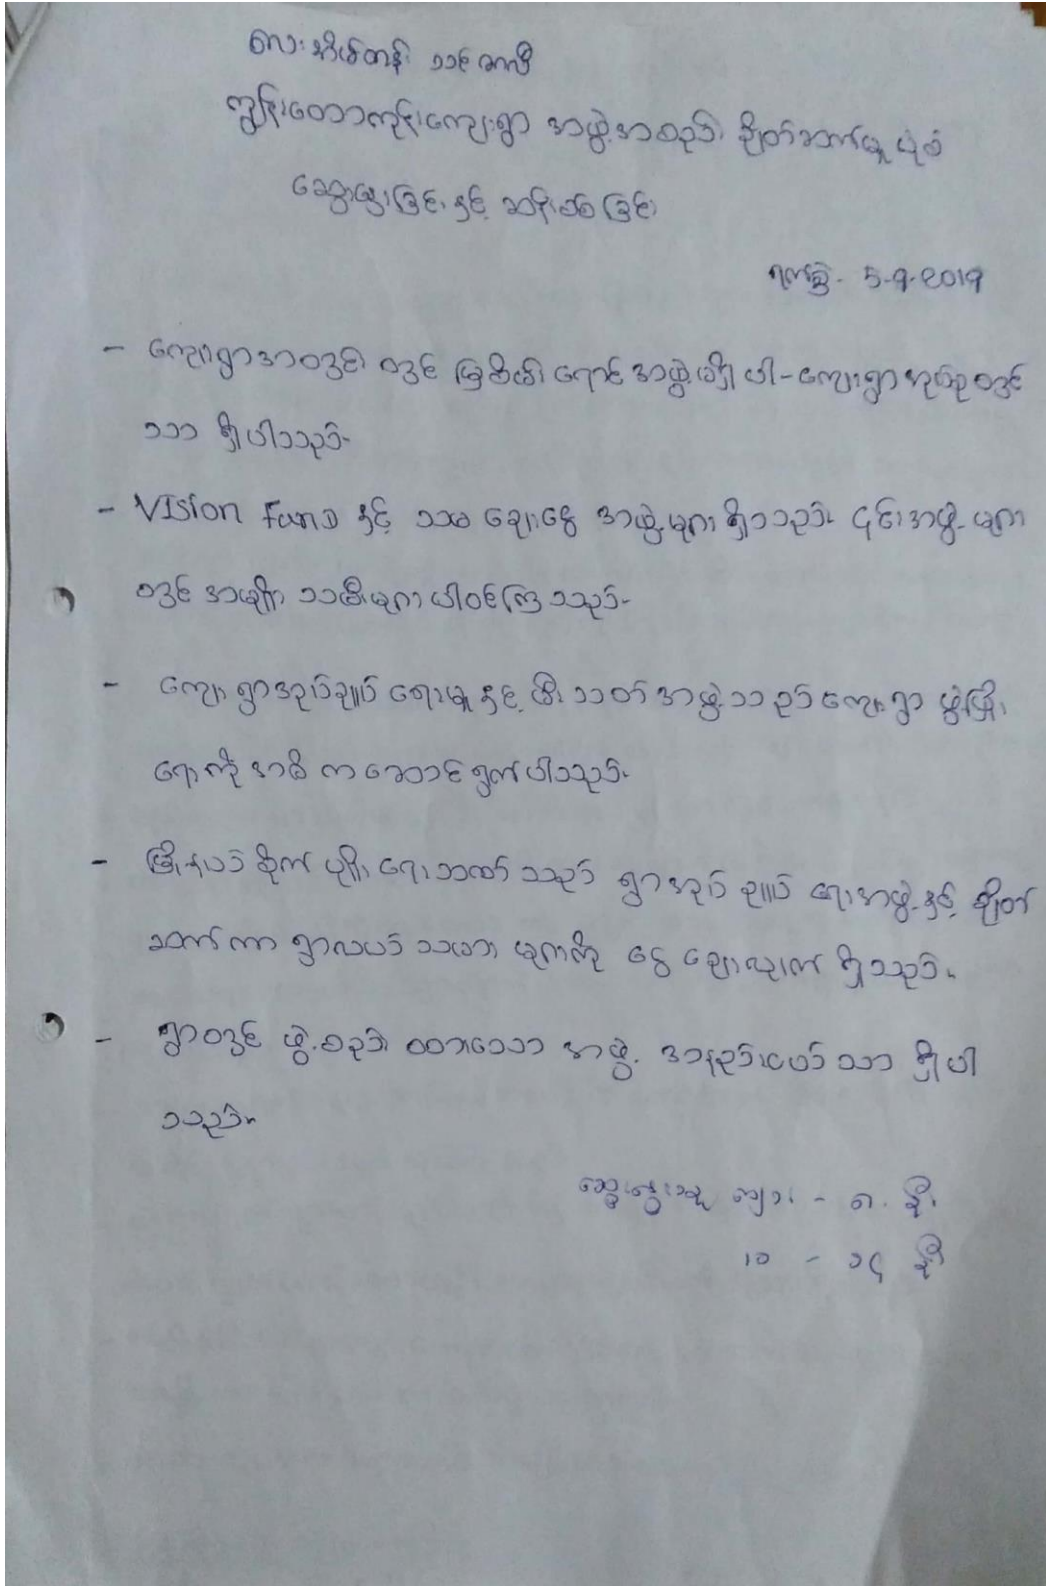 လေးအိမ်တန်း သင်္ဘောလီ
ကျွန်းတောကုန်းကျေးရွာ အဖွဲ့အစည်း ချိတ်ဆက်မှု ပုံစံ
ဆွေးနွေးခြင်း နှင့် ဆန်းစစ်ခြင်း
ရက်စွဲ- 5-9-2019
- ကျေးရွာအတွင်း တွင် မြစိမ်းရောင် အဖွဲ့ မရှိပါ - ကျေးရွာအုပ်စုတွင်
သာ ရှိပါသည်။
- VIsion Fund နှင့် သမ ချေးငွေ အဖွဲ့များ ရှိသည်။ ၎င်းအဖွဲ့များ
တွင် အမျိုးသမီးများ ပါဝင်ကြသည်။
- ကျေးရွာအုပ်ချုပ်ရေးမှူး နှင့် မီးသတ်အဖွဲ့သည် ကျေးရွာ ဖွံ့ဖြိုး
ရေးကို အဓိက ဆောင်ရွက်ပါသည်။
- မြို့နယ် စိုက်ပျိုးရေးဘဏ် သည် ရွာအုပ်ချုပ်ရေးအဖွဲ့ နှင့် ချိတ်
ဆက်ကာ ရွာလယ်သမား များကို ငွေချေးလျက် ရှိသည်။
- ရွာတွင် ဖွဲ့စည်းထားသော အဖွဲ့ အနည်းငယ်သာ ရှိပါ
သည်။
ဆွေးနွေးသူ ကျား - ၈ ဦး
မ - ၁၄ ဦး